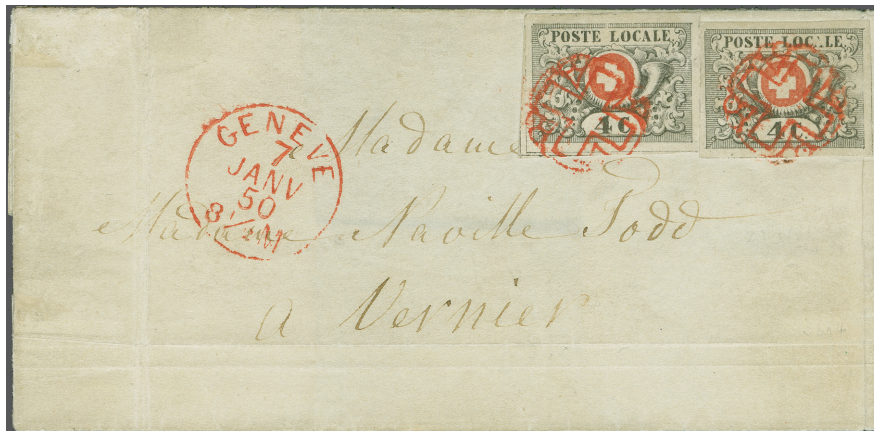 POSTE LOCALE
4 C
POSTE LOCALE
4 C
GENEVE
7
JANV
50
8 M
a Madame
Madame Naville Todd
a Vernier